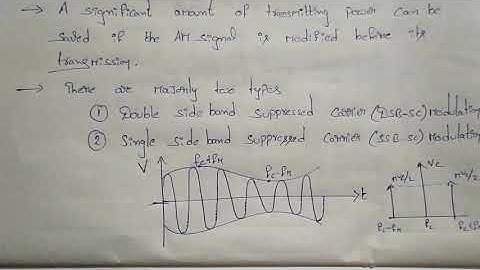 → A significant amount of transmitting power can be
saved if the AM signal is modified before its
transmission.
→ There are majorly two types
① Double side band suppressed carrier (DSB-SC) modulation
② Single side band suppressed carrier (SSB-SC) modulation
V
fc+fm
fc-fm
t
Vc
mVc/2
mVc/2
fc-fm
fc
fc+fm